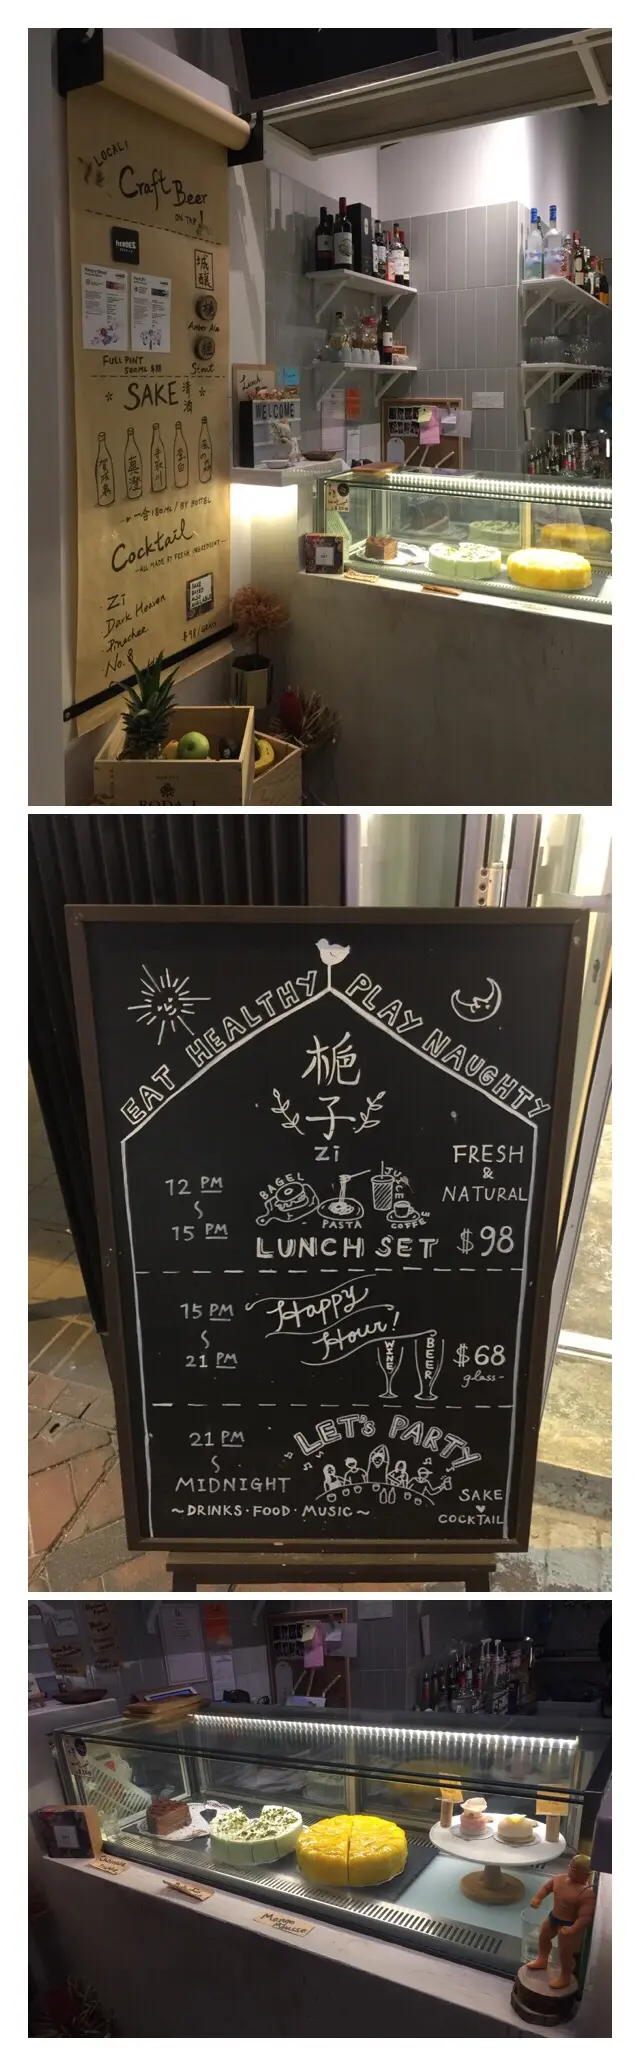 LOCAL!
Craft Beer
ON TAP!
HEROES
城
釀
Amber Ale
Stout
FULL PINT
500ML $88
SAKE 清酒
賀茂泉
真澄
手取川
李白
一合180ML / BY BOTTEL
Cocktail
ALL MADE BY FRESH INGREDIENT
Zi
Dark Heaven
No. 8
$98/GLASS
Lunch
WELCOME
RODA I
EAT HEALTHY PLAY NAUGHTY
梔
子
Zi
FRESH
&
NATURAL
12 PM
15 PM
BAGEL
PASTA
JUICE
COFFE
LUNCH SET $98
15 PM
21 PM
Happy
Hour!
WINE
BEER
$68
glass-
21 PM
MIDNIGHT
LET'S PARTY
~DRINKS·FOOD·MUSIC~
SAKE
COCKTAIL
Mango
Mousse